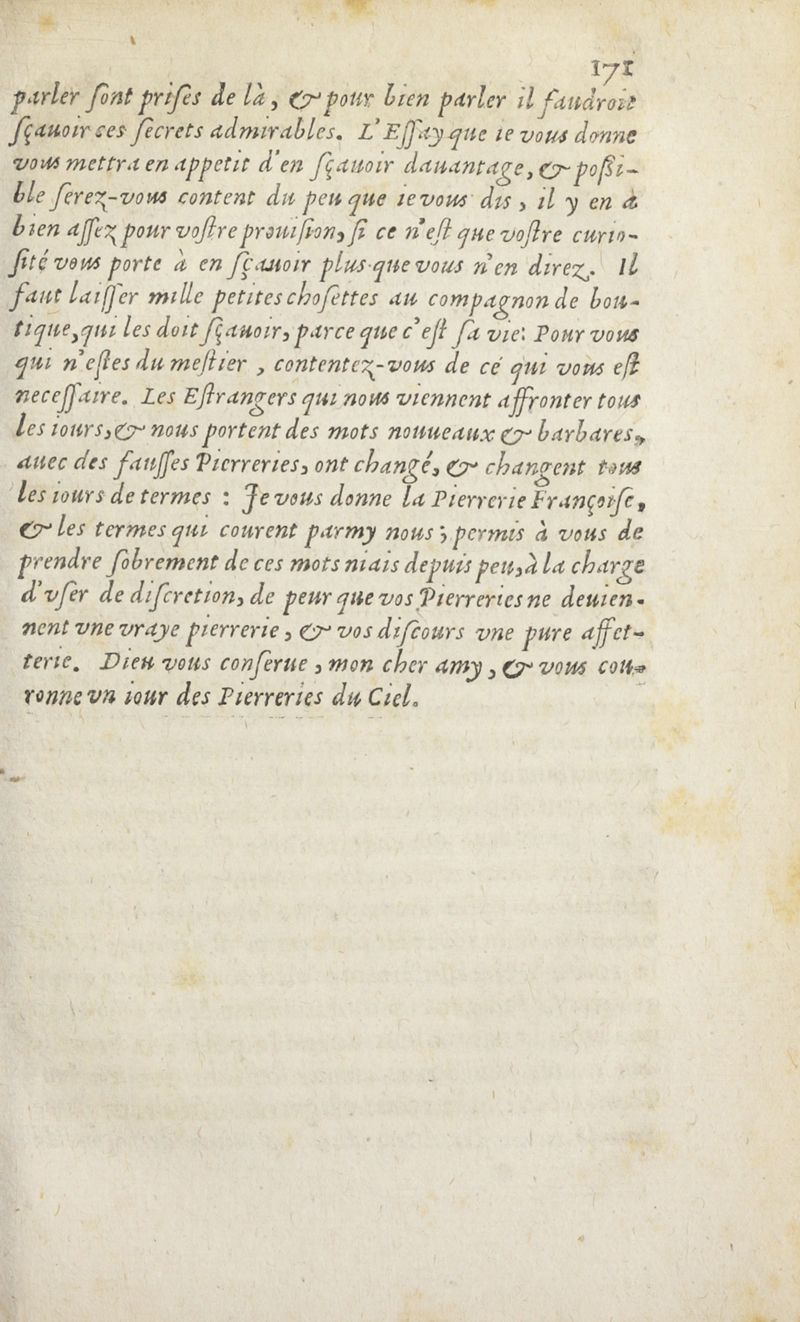 171
parler ſont priſes de là, & pour bien parler il faudroit
ſçauoir ces ſecrets admirables. L'Eſſay que ie vous donne
vous mettra en appetit d'en ſçauoir dauantage, & poſsi-
ble ſerez-vous content du peu que ie vous dis, il y en a
bien aſſez pour voſtre prouiſion, ſi ce n'eſt que voſtre curio-
ſité vous porte à en ſçauoir plus que vous n'en direz. Il
faut laiſſer mille petites choſettes au compagnon de bou-
tique, qui les doit ſçauoir, parce que c'eſt ſa vie: Pour vous
qui n'eſtes du meſtier, contentez-vous de cé qui vous eſt
neceſſaire. Les Eſtrangers qui nous viennent affronter tous
les iours, & nous portent des mots nouueaux & barbares,
auec des fauſſes Pierreries, ont changé, & changent tous
les iours de termes : Je vous donne la Pierrerie Françoiſe,
& les termes qui courent parmy nous; permis à vous de
prendre ſobrement de ces mots niais depuis peu, à la charge
d'vſer de diſcretion, de peur que vos Pierreries ne deuien-
nent vne vraye pierrerie, & vos diſcours vne pure affet-
terie. Dieu vous conſerue, mon cher amy, & vous cou-
ronne vn iour des Pierreries du Ciel.